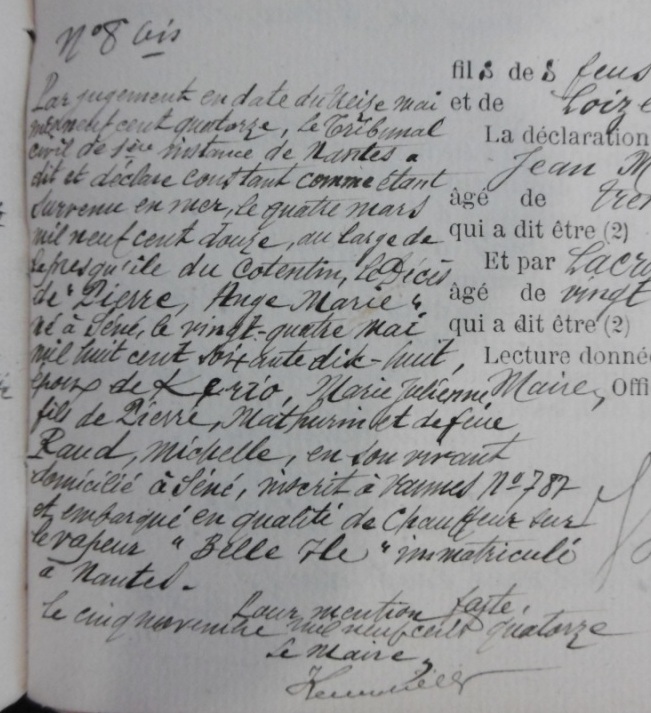 Nº 8 bis
Par jugement en date du treize mai
mil neuf cent quatorze, le Tribunal
civil de 1ère instance de Nantes a
dit et déclare constant comme étant
survenu en mer, le quatre mars
mil neuf cent douze, au large de
la presqu'île du Cotentin, le Décès
de " Pierre, Ange Marie "
né à Séné, le vingt-quatre mai
mil huit cent soixante dix-huit,
époux de Kerrio, Marie Julienne
fils de Pierre, Mathurin et de feue
Raud, Michelle, en son vivant
domicilié à Séné, inscrit à Vannes Nº 787
et embarqué en qualité de Chauffeur sur
le vapeur " Belle Ile " immatriculé
à Nantes.
Pour mention faite,
le cinq novembre mil neuf cent quatorze
Le Maire,
fils de feus
et de Loize
La déclaration
Jean M
âgé de
qui a dit être (2)
Et par Lacro
âgé de vingt
qui a dit être (2)
Lecture donnée
Maire, Offi